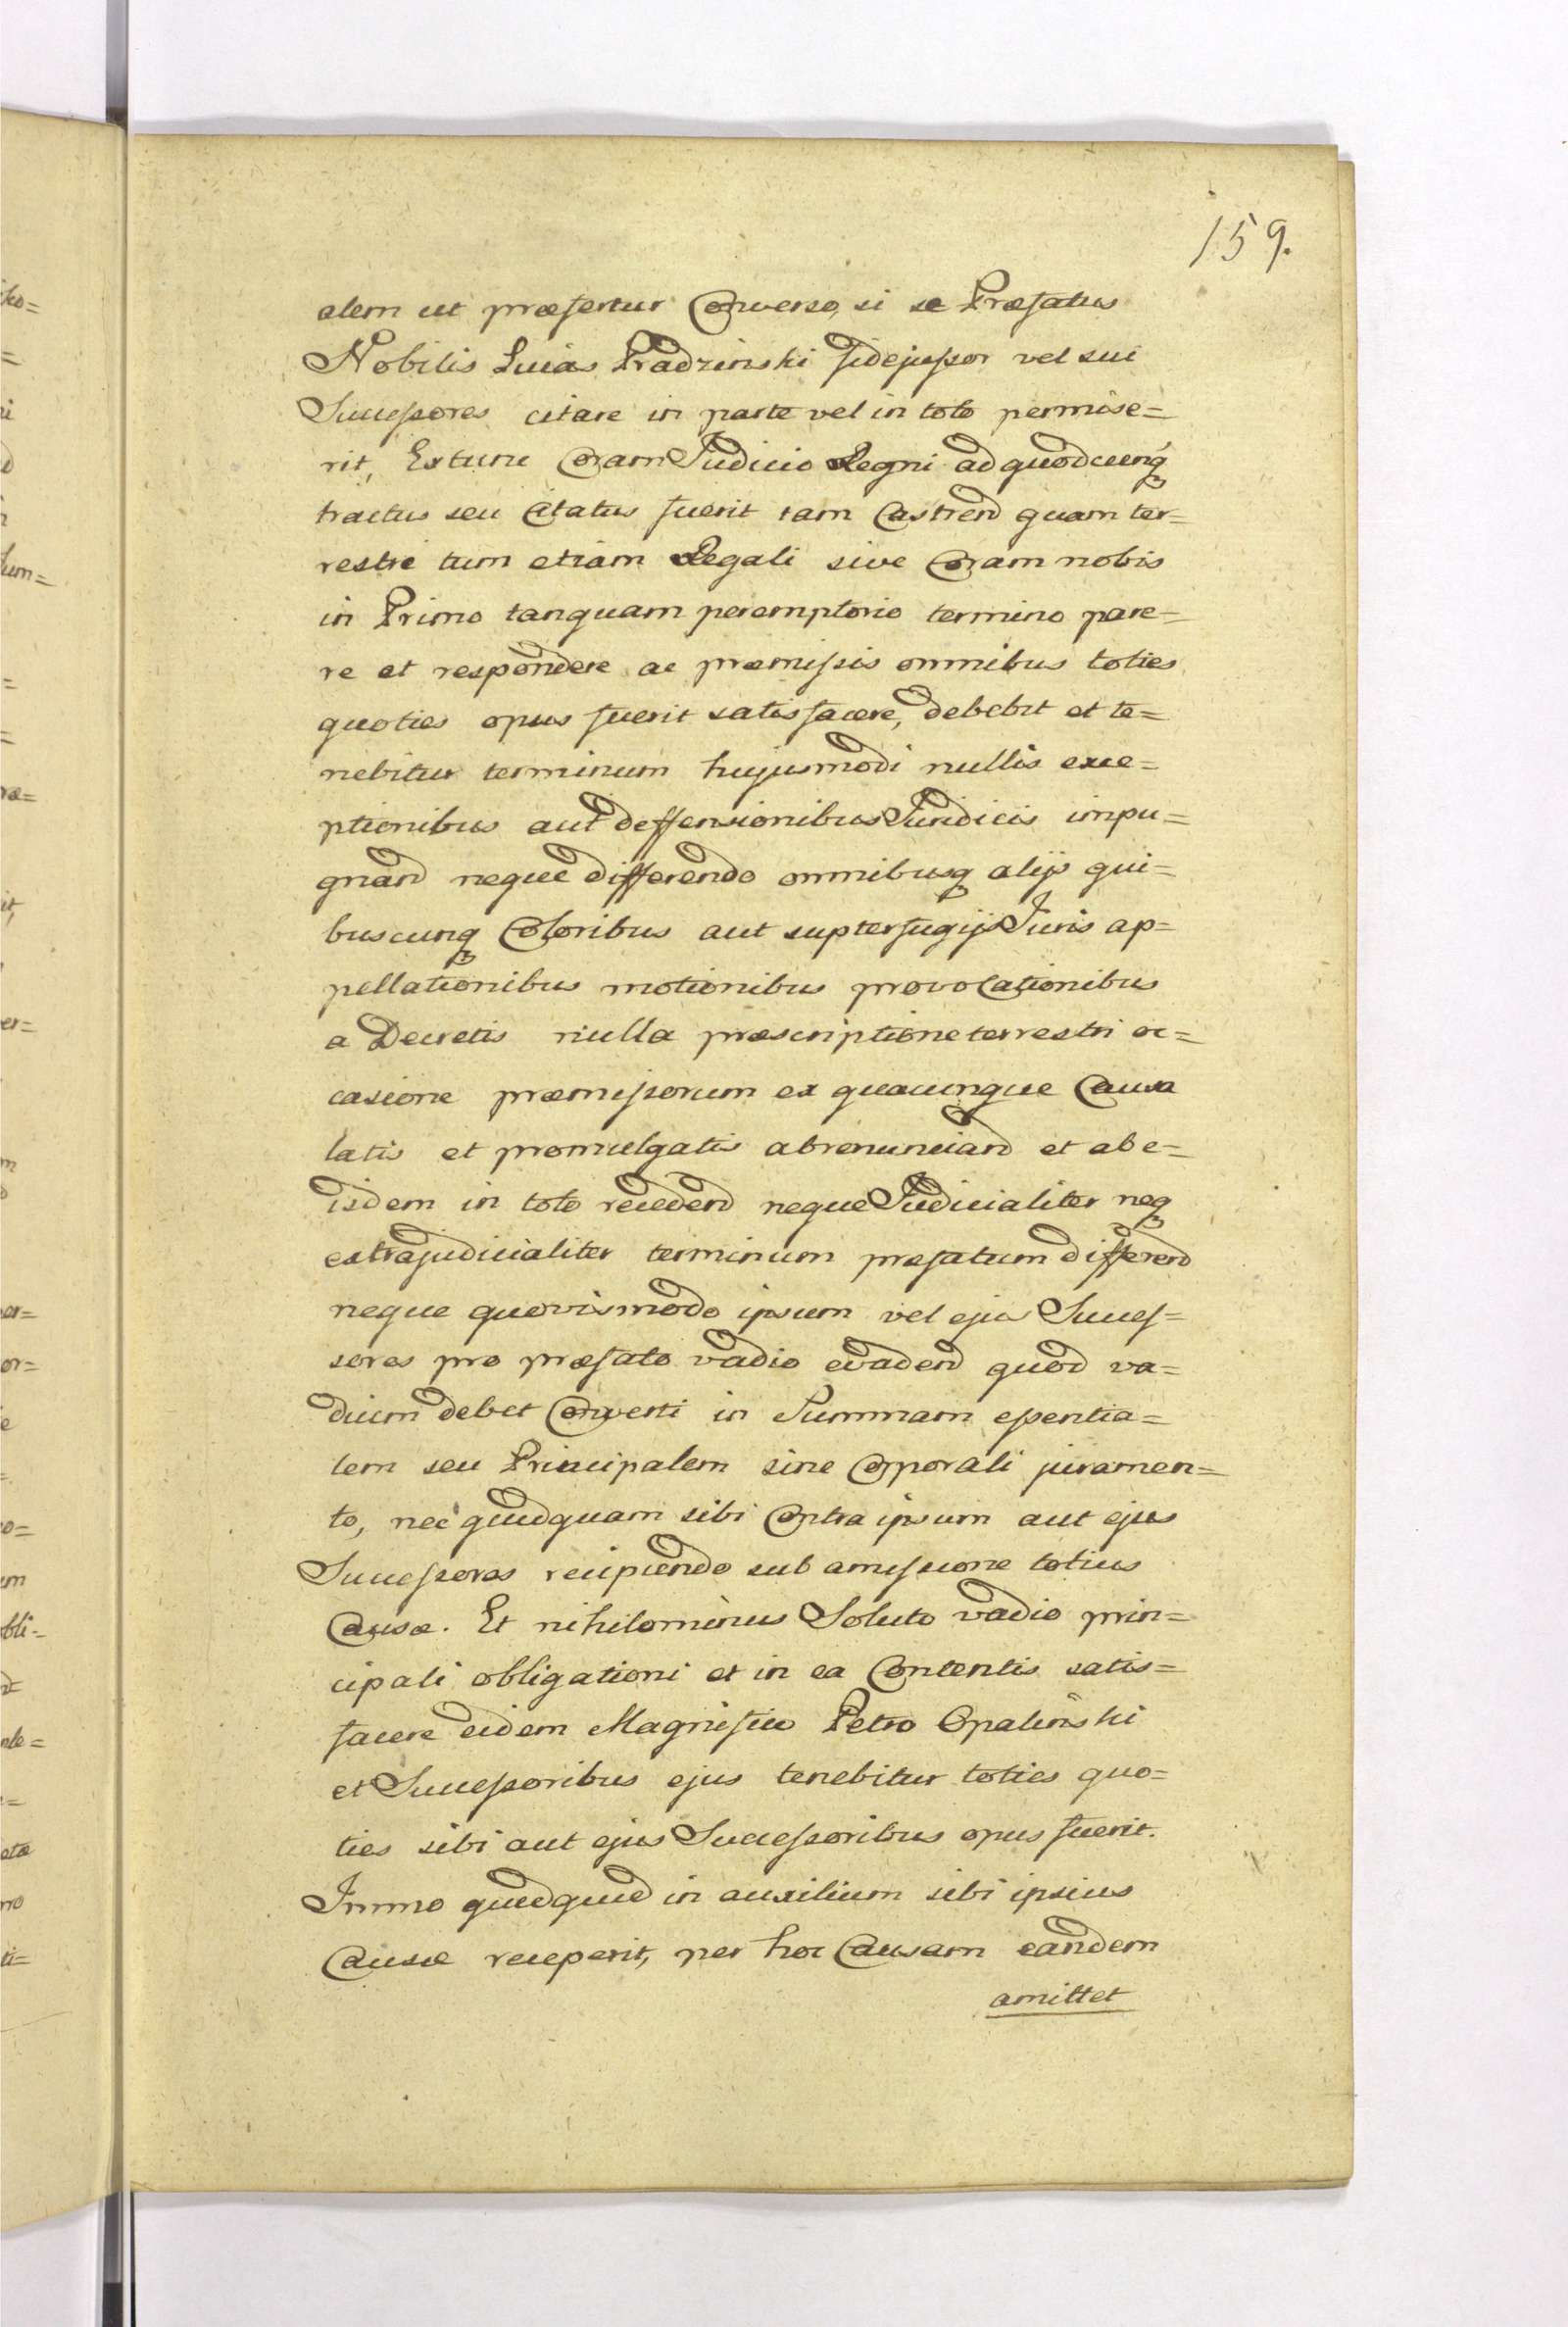 159.
alem ut præfertur Converso, si se Præfatus
Nobilis Lucas Prądzinski fidejussor vel sui
Successores citare in parte vel in toto permise=
rit, Extunc Coram Judicio Regni ad quodcunq
tractus seu Citatus fuerit tam Castrend quam ter=
restri tum etiam Regali sive Coram nobis
in Primo tanquam peremptorio termino pare=
re et respondere ac præmissis omnibus toties
quoties opus fuerit satisfacere, debebit et te=
nebitur terminum hujusmodi nullis exce=
ptionibus aut deffensionibus Juridicis impu=
gnand neque differendo omnibusq alijs qui=
buscunq Coloribus aut supterfugijs Juris ap=
pellationibus motionibus provocationibus
a Decretis nulla præscriptione terrestri oc=
casione præmissorum ex quacunque Causa
latis et promulgatis abrenunciand et ab e=
isdem in toto recedend neque Judicialiter neq
extrajudicialiter terminum præfatum differend
neque quovismodo ipsum vel ejus Succes=
sores pro præfato vadio evadend quod va=
dium debet Converti in Summam essentia=
lem seu Principalem sine Corporali juramen=
to, nec quidquam sibi Contra ipsum aut ejus
Successores recipiendo sub amissione totius
Causæ. Et nihilominus Soluto vadio prin=
cipali obligationi et in ea Contentis satis=
facere eidem Magnifico Petro Opalinski
et Successoribus ejus tenebitur toties quo=
ties sibi aut ejus Successoribus opus fuerit.
Immo quidquid in auxilium sibi ipsius
Causæ receperit, per hoc Causam eandem
amittet